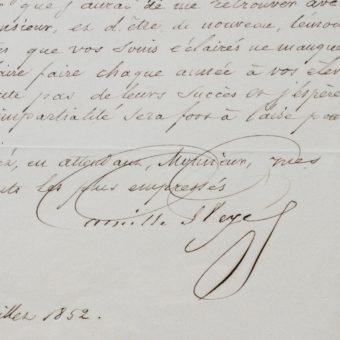 que j'aurai de me retrouver ave
nsieur, et d'être de nouveau, temoi
que vos soins éclairés ne manque
ire faire chaque année à vos élev
ute pas de leurs succès et j'espère
impartialité sera fort à l'aise pou
en attendant, Monsieur, mes
nts les plus empressés
Camille Pleyel
illet 1852.